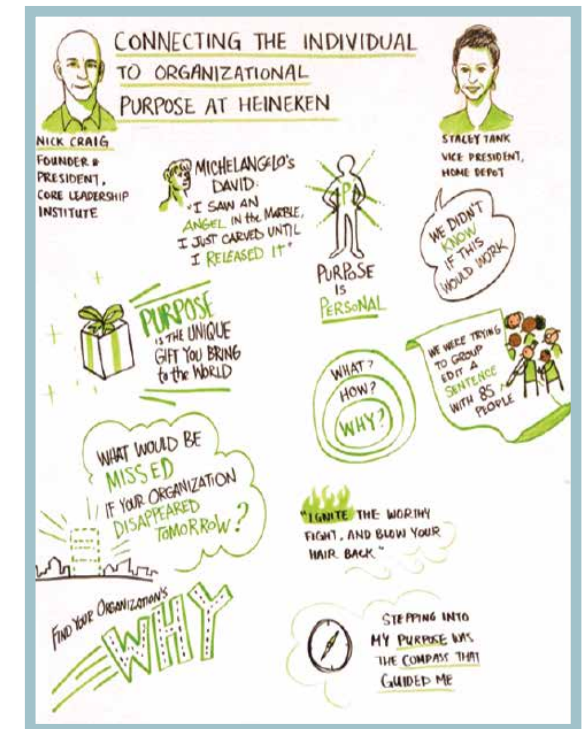 CONNECTING THE INDIVIDUAL
TO ORGANIZATIONAL
PURPOSE AT HEINEKEN
NICK CRAIG
FOUNDER &
PRESIDENT,
CORE LEADERSHIP
INSTITUTE
STACEY TANK
VICE PRESIDENT,
HOME DEPOT
MICHELANGELO'S
DAVID:
"I SAW AN
ANGEL IN the MARBLE,
I JUST CARVED UNTIL
I RELEASED IT"
P
PURPOSE
IS
PERSONAL
WE DIDN'T
KNOW
IF THIS
WOULD WORK
PURPOSE
IS THE UNIQUE
GIFT YOU BRING
to the WORLD
WHAT?
HOW?
WHY?
WE WERE TRYING
TO GROUP
EDIT A
SENTENCE
WITH 85
PEOPLE
WHAT WOULD BE
MISSED
IF YOUR ORGANIZATION
DISAPPEARED
TOMORROW?
"IGNITE THE WORTHY
FIGHT, AND BLOW YOUR
HAIR BACK"
FIND YOUR ORGANIZATION'S
WHY
STEPPING INTO
MY PURPOSE WAS
THE COMPASS THAT
GUIDED ME